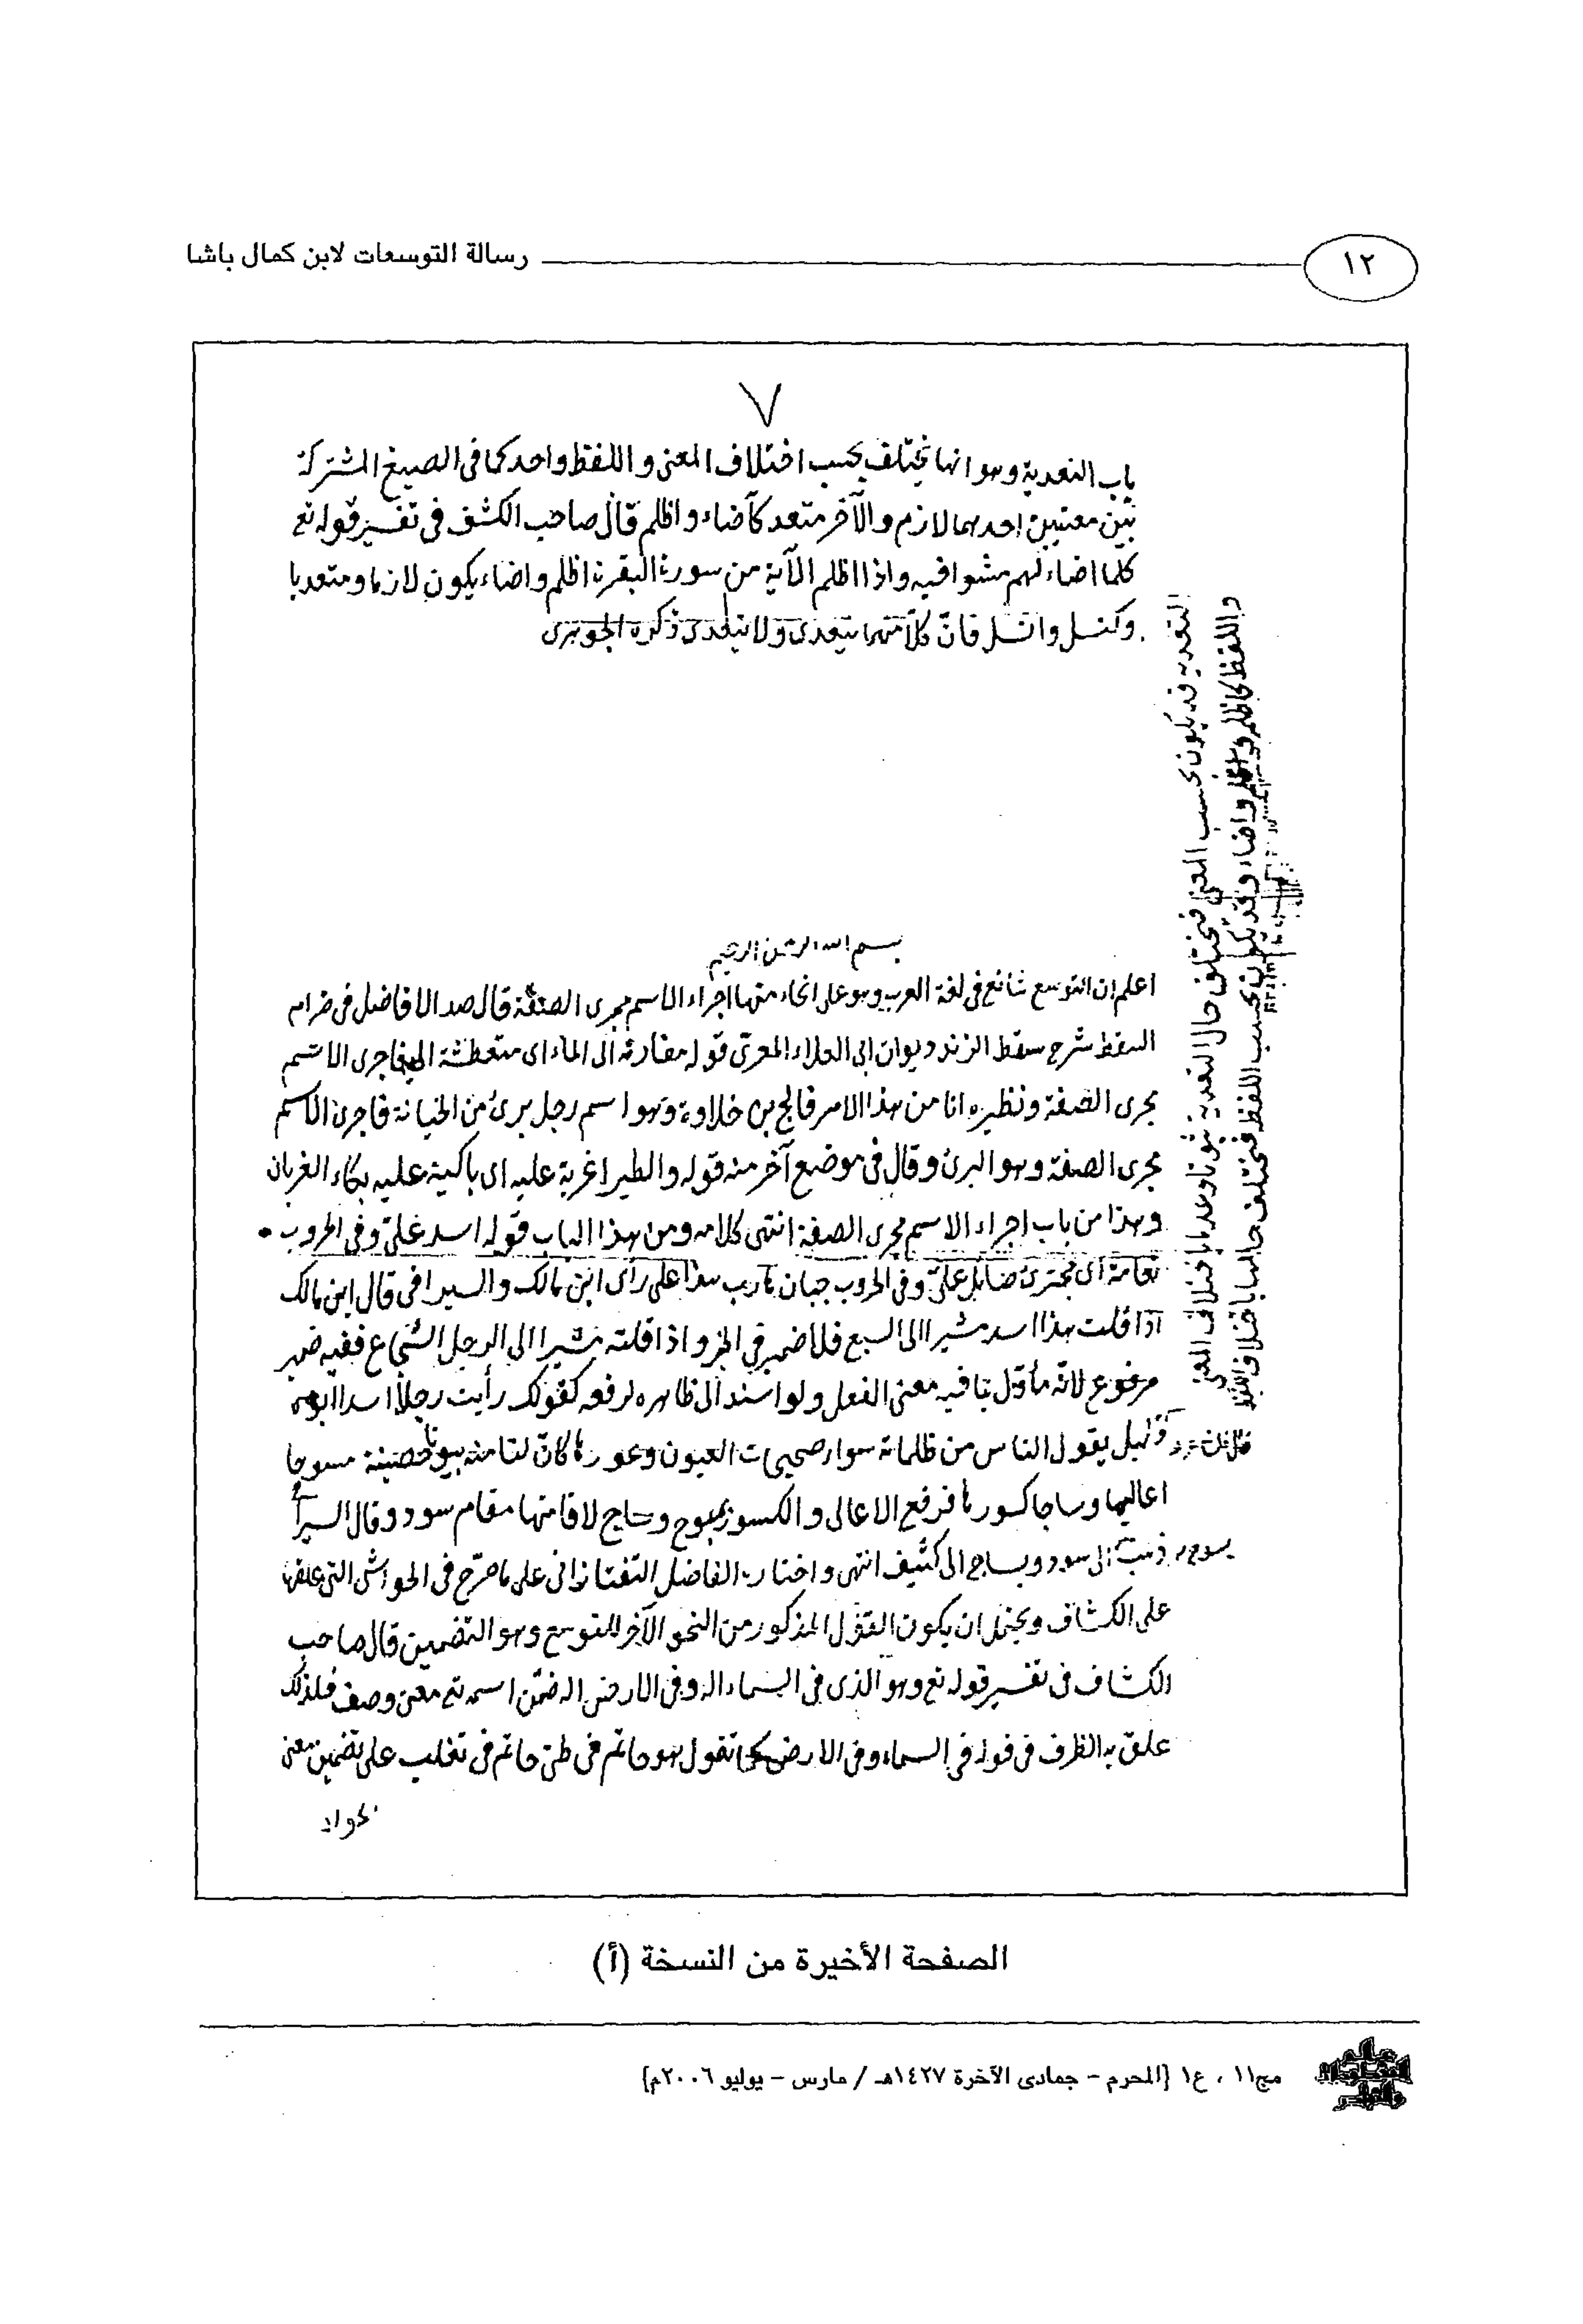 رسالة التوسعات لابن كمال باشا
١٢
٧
باب التعدية وهو انها تختلف بحسب اختلاف المعنى واللفظ واحد كما فى الصيغ المشتركة
بين معنيين احدهما لازم والآخر متعد كأضاء واظلم قال صاحب الكشف فى تفسير قوله تع
كلما اضاء لهم مشوا فيه واذا اظلم الآية من سورة البقرة اظلم واضاء يكون لازما ومتعديا
وكنسل وانسل فانّ كلا منهما يتعدى ولا يتعدى ذكره الجوهرى
التعدية قد يكون بحسب المعنى فتختلف حال التعدية ثبوتا وعدما باختلاف المعنى
واللفظ كاظلم واضاء وقد يكون بحسب اللفظ فتختلف حالها باختلاف اللفظ
بسم الله الرحمن الرحيم
اعلم ان التوسع شائع فى لغة العرب وهو على انحاء منها اجراء الاسم مجرى الصفة قال صدر الافاضل فى ضرام
السقط شرح سقط الزند ديوان ابى العلاء المعرى قوله الى الماء اى متعطشة اليه فاجرى الاسم
مجرى الصفة ونظيره انا من هذا الامر فالج بن خلاوة وهو اسم رجل برئ من الخيانة فاجرى الاسم
مجرى الصفة وهو البرئ وقال فى موضع آخر منه قوله والطير اغربة عليه اى باكية عليه بكاء الغربان
وهذا من باب اجراء الاسم مجرى الصفة انتهى كلامه ومن هذا الباب قوله اسد علىّ وفى الحروب
نعامة اى مجترئ صائل علىّ وفى الحروب جبان هارب هذا على رأى ابن مالك والسيرافى قال ابن مالك
اذا قلت هذا اسد مشيرا الى السبع فلا ضمير فى الخبر واذا قلته مشيرا الى الرجل الشجاع ففيه ضمير
مرفوع لانّه مأوّل بما فيه معنى الفعل ولو اسند الى ظاهر لرفعه كقولك رأيت رجلا اسدا ابوه
وليل يقول الناس من ظلماته سواء صحيحات العيون وعورها كانّ لنا منه بيوتا حصينة مسوحا
اعاليها وساجا كسورها فرفع الاعالى والكسور بمسوح وساج لاقامتها مقام سود وقال السيرا
ذهبت الى سود وبساج الى كثيف انتهى واختاره الفاضل التفتازانى على ما صرّح فى الحواشى التى علقها
على الكشاف ويحتمل ان يكون القول المذكور من النحو الآخر للتوسع وهو التضمين قال صاحب
الكشاف فى تفسير قوله تع وهو الذى فى السماء اله وفى الارض اله ضمّن اسمه تع معنى وصف فلذلك
علق به الظرف فى قوله فى السماء وفى الارض كما تقول هو حاتم فى طىّ حاتم فى تغلب على تضمين معنى
الجواد
الصفحة الأخيرة من النسخة (أ)
مج١١ ، ع١ [المحرم - جمادى الآخرة ١٤٢٧هـ / مارس - يوليو ٢٠٠٦م]
عالم المخطوطات والنوادر